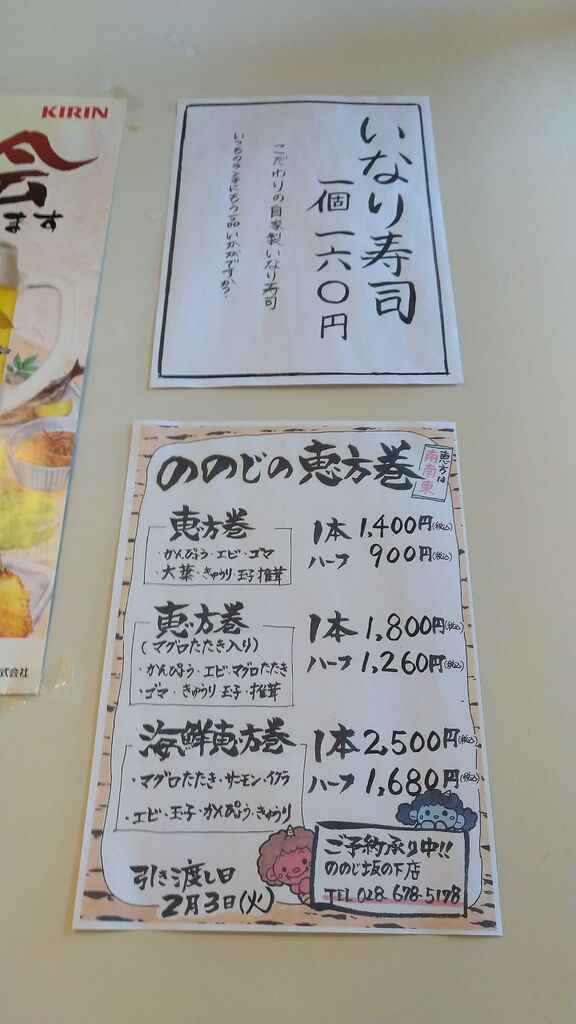 KIRIN
会
ます
式会社
いなり寿司
一個一六〇円
こだわりの自家製いなり寿司
いつものランチにもう一品いかがですか?
ののじの恵方巻
恵方は
南南東
恵方巻
・かんぴょう・エビ・ゴマ
・大葉・きゅうり・玉子・椎茸
1本 1,400円(税込)
ハーフ 900円(税込)
恵方巻
(マグロたたき入り)
・かんぴょう・エビ・マグロたたき
・ゴマ・きゅうり・玉子・椎茸
1本 1,800円(税込)
ハーフ 1,260円(税込)
海鮮恵方巻
・マグロたたき・サーモン・イクラ
・エビ・玉子・かんぴょう・きゅうり
1本 2,500円(税込)
ハーフ 1,680円(税込)
引き渡し日
2月3日(火)
ご予約承り中!!
ののじ坂の下店
TEL 028-678-5178